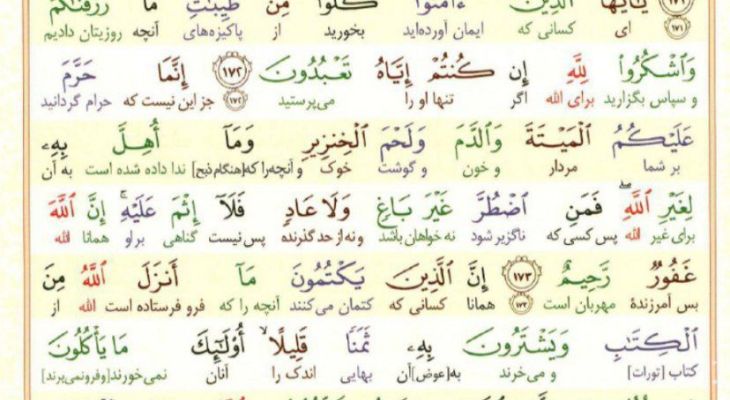 ﴿١٧١﴾ يَٰٓأَيُّهَا ٱلَّذِينَ ءَامَنُوا۟ كُلُوا۟ مِن طَيِّبَٰتِ مَا رَزَقْنَٰكُمْ
١٧١ ای کسانی که ایمان آورده‌اید بخورید از پاکیزه‌های آنچه روزیتان دادیم
وَٱشْكُرُوا۟ لِلَّهِ إِن كُنتُمْ إِيَّاهُ تَعْبُدُونَ ﴿١٧٢﴾ إِنَّمَا حَرَّمَ
و سپاس بگزارید برای الله اگر تنها او را می‌پرستید ١٧٢ جز این نیست که حرام گردانید
عَلَيْكُمُ ٱلْمَيْتَةَ وَٱلدَّمَ وَلَحْمَ ٱلْخِنزِيرِ وَمَآ أُهِلَّ بِهِۦ
بر شما مردار و خون و گوشت خوک و آنچه را که [هنگام ذبح] ندا داده شده است به آن
لِغَيْرِ ٱللَّهِ ۖ فَمَنِ ٱضْطُرَّ غَيْرَ بَاغٍ وَلَا عَادٍ فَلَآ إِثْمَ عَلَيْهِ ۚ إِنَّ ٱللَّهَ
برای غیر الله پس کسی که ناگزیر شود نه خواهان باشد و نه از حد گذرنده پس نیست گناهی بر او همانا الله
غَفُورٌ رَّحِيمٌ ﴿١٧٣﴾ إِنَّ ٱلَّذِينَ يَكْتُمُونَ مَآ أَنزَلَ ٱللَّهُ مِنَ
بس آمرزندهٔ مهربان است ١٧٣ همانا کسانی که کتمان می‌کنند آنچه را که فرو فرستاده است الله از
ٱلْكِتَٰبِ وَيَشْتَرُونَ بِهِۦ ثَمَنًا قَلِيلًا ۙ أُو۟لَٰٓئِكَ مَا يَأْكُلُونَ
کتاب [تورات] و می‌خرند به [عوض] آن بهایی اندک را آنان نمی‌خورند [و فرو نمی‌برند]